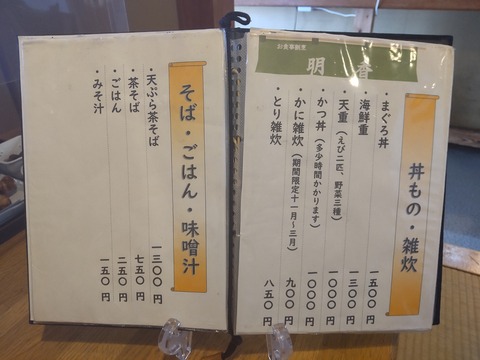 明香
丼もの・雑炊
・まぐろ丼 一五〇〇円
・海鮮重 一三〇〇円
・天重(えび二匹、野菜三種) 一〇〇〇円
・かつ丼(多少時間かかります) 一〇〇〇円
・かに雑炊(期間限定十一月~三月) 九〇〇円
・とり雑炊 八五〇円
そば・ごはん・味噌汁
・天ぷら茶そば 一三〇〇円
・茶そば 七五〇円
・ごはん 二五〇円
・みそ汁 一五〇円